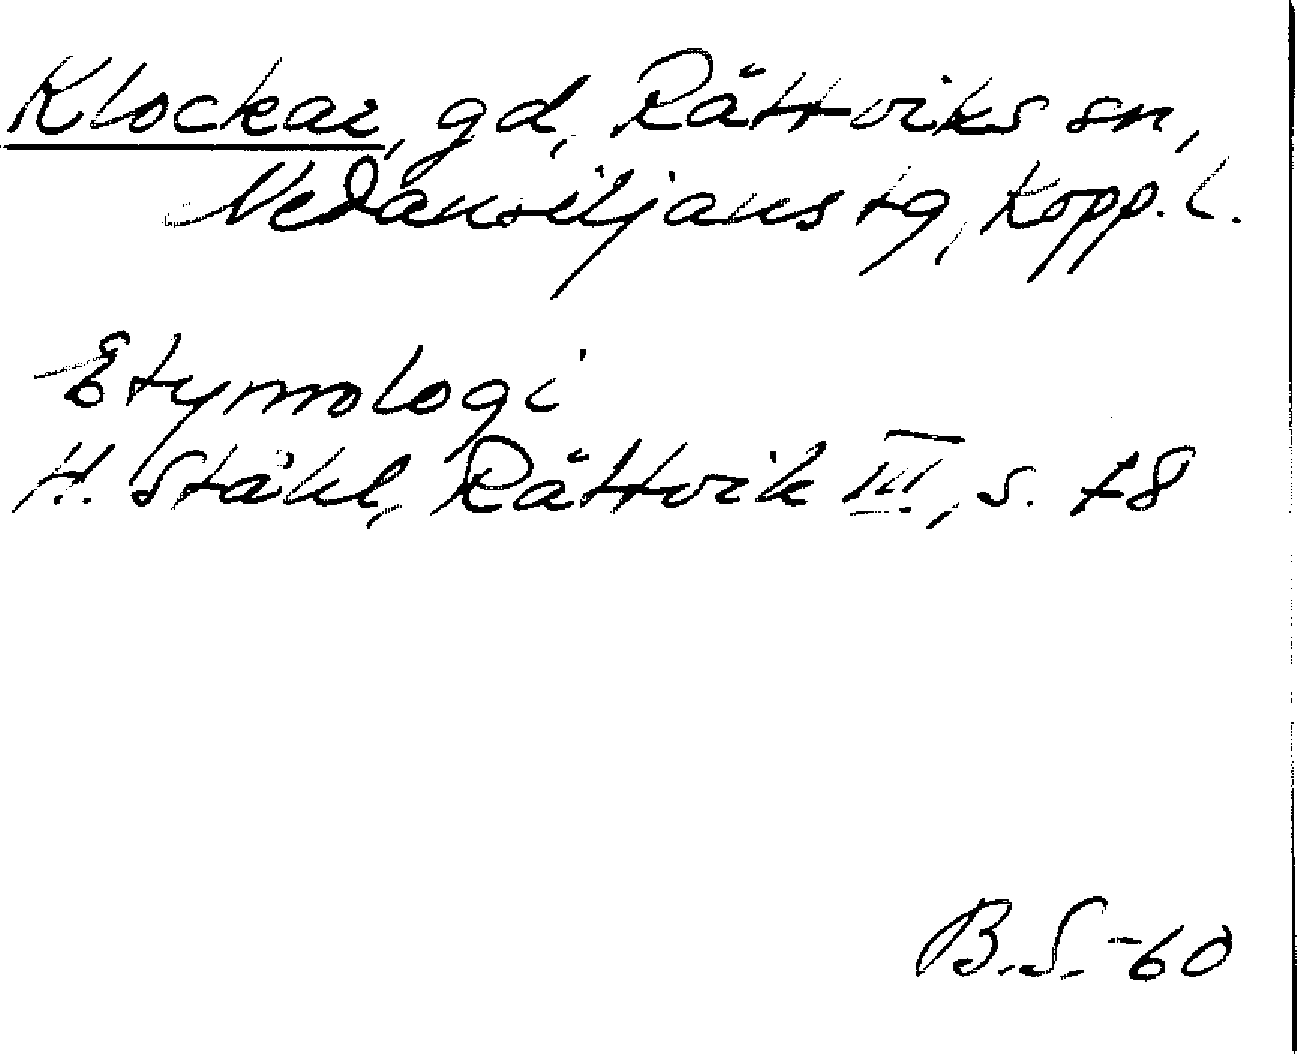 Klockar, gd, Rättviks sn,
Nedansiljans tg, Kopp. l.
Etymologi
H. Ståhl, Rättvik III, s. 78
B.S.-60